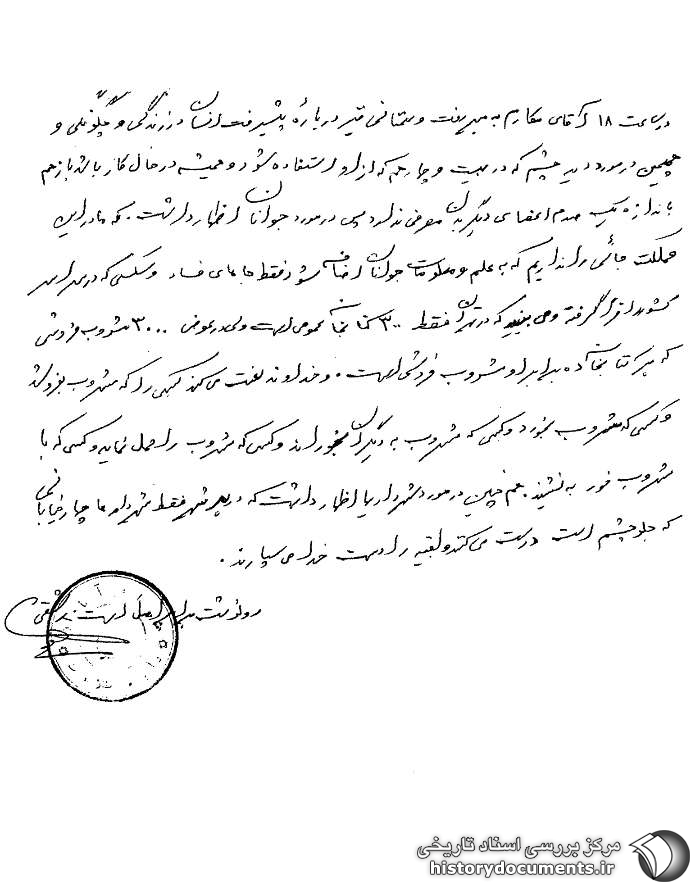 در ساعت ۱۸ آقای مکارم به منبر رفت و سخنانی نیز درباره پیشرفت انسان در زندگی و چگونگی و
همچنین در مورد دید چشم که در بیست و چهار ساعت که از او استفاده شود و همیشه در حال کار باشد باز هم
باندازه یک صدم اعضای دیگر بدن مصرفی ندارد سپس در مورد جوانان اظهار داشت. که ما در این
مملکت جائی را نداریم که به علم و معلومات جوانان اضافه شود فقط جاهای فساد و سکسی که در سراسر
کشور را فرا گرفته و می بینید که در تهران فقط ۳۰ کتابخانه عمومی است ولی در عوض ۳۰۰۰ مشروب فروشی
که هر کتابخانه برابر او مشروب فروشی است. و خداوند لعنت می کند کسی را که مشروب بفروشد
و کسی که مشروب بخورد و کسی که مشروب به دیگران بخوراند و کسی که مشروب را حمل نماید و کسی که با
مشروب خور به نشیند. هم چنین در مورد شهرداریها اظهار داشت که در هر شهر فقط شهردارها چهار خیابانی
که جلو چشم است درست می کنند و بقیه را بدست خدا می سپارند.
رونوشت برابر اصل است
مرکز بررسی اسناد تاریخی
historydocuments.ir